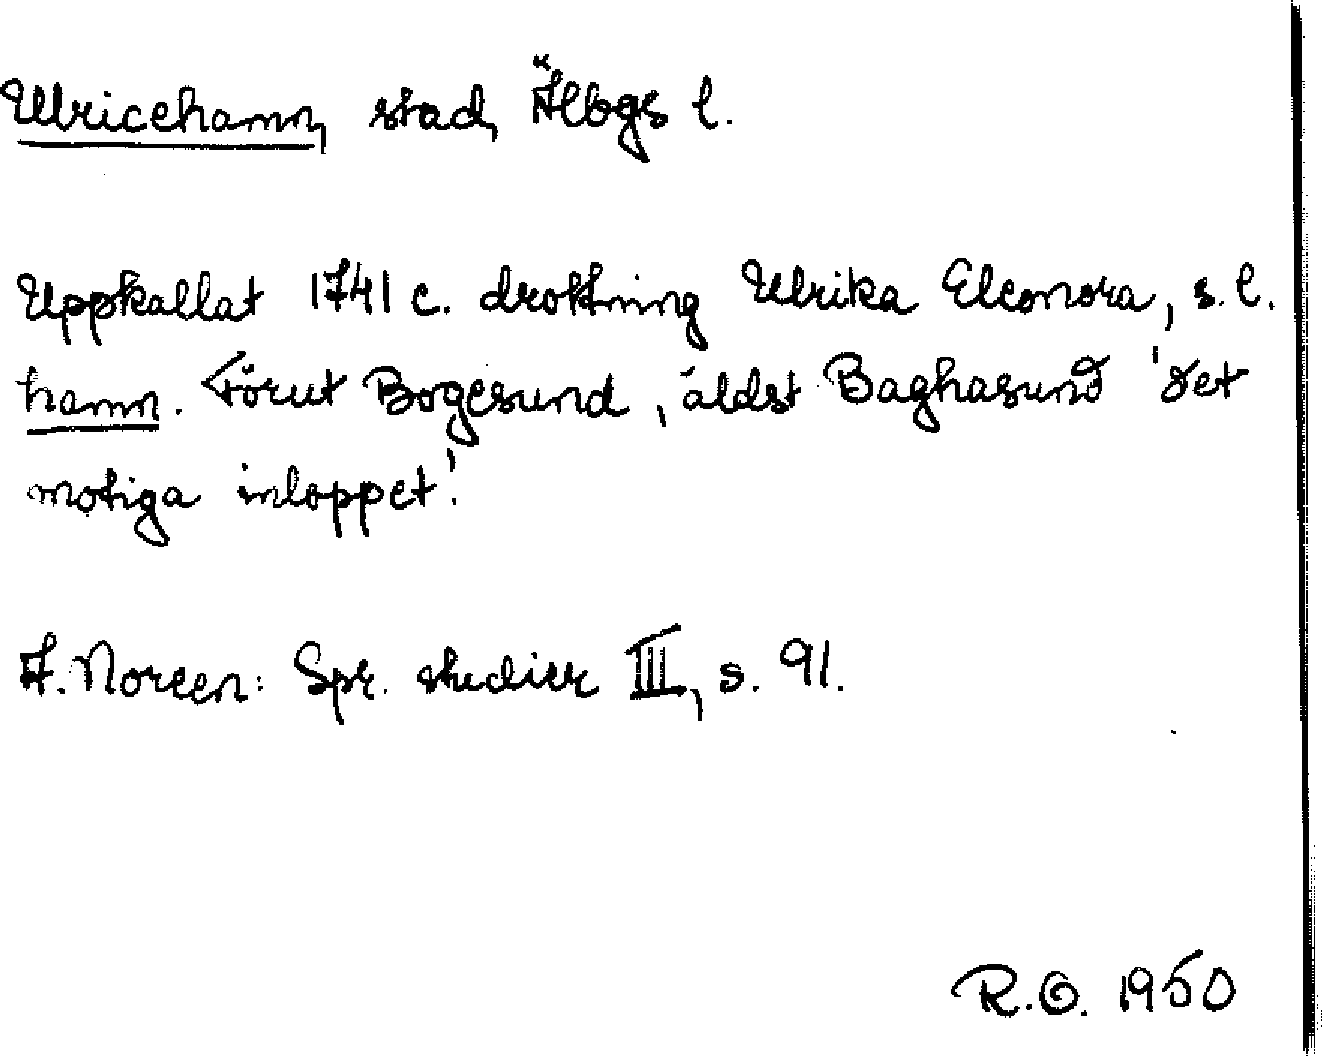 Ulricehamn, stad, Älbgs l.
Uppkallat 1741 e. drottning Ulrika Eleonora, s. l.
hamn. Förut Bogesund, äldst Baghasund 'det
motiga inloppet'.
A. Noreen: Spr. studier III, s. 91.
R.O. 1950